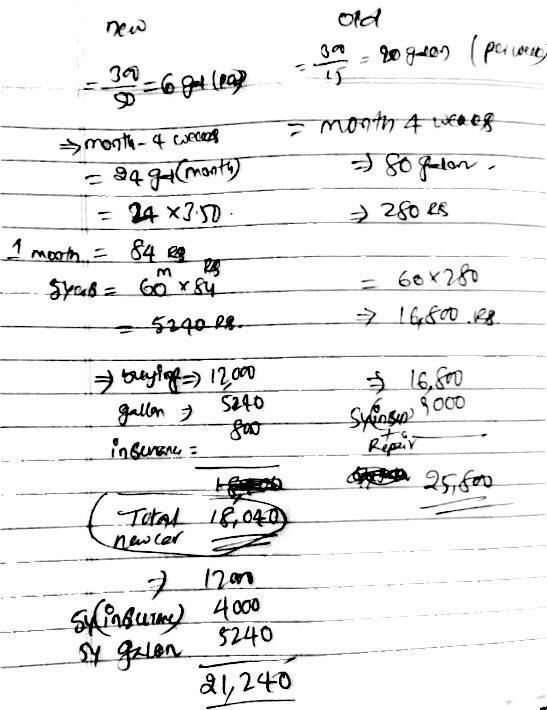 new
= 300/50 = 6 gal
⇒ month - 4 weeks
= 24 gal (month)
= 24 × 3.50.
1 month = 84 RS
5 years = 60 m × 84 RS
= 5240 RS.
⇒ buying ⇒ 12,000
gallon ⇒ 5240
insurance = 800
Total 18,040
new car
⇒ 12000
5y (insurance) 4000
5y galon 5240
21,240
old
= 300/15 = 20 galon (per week)
= month 4 weeks
⇒ 80 galon.
⇒ 280 RS
= 60 × 280
⇒ 16,800 .RS.
⇒ 16,800
5y (insu) 9000
+
Repair
25,800